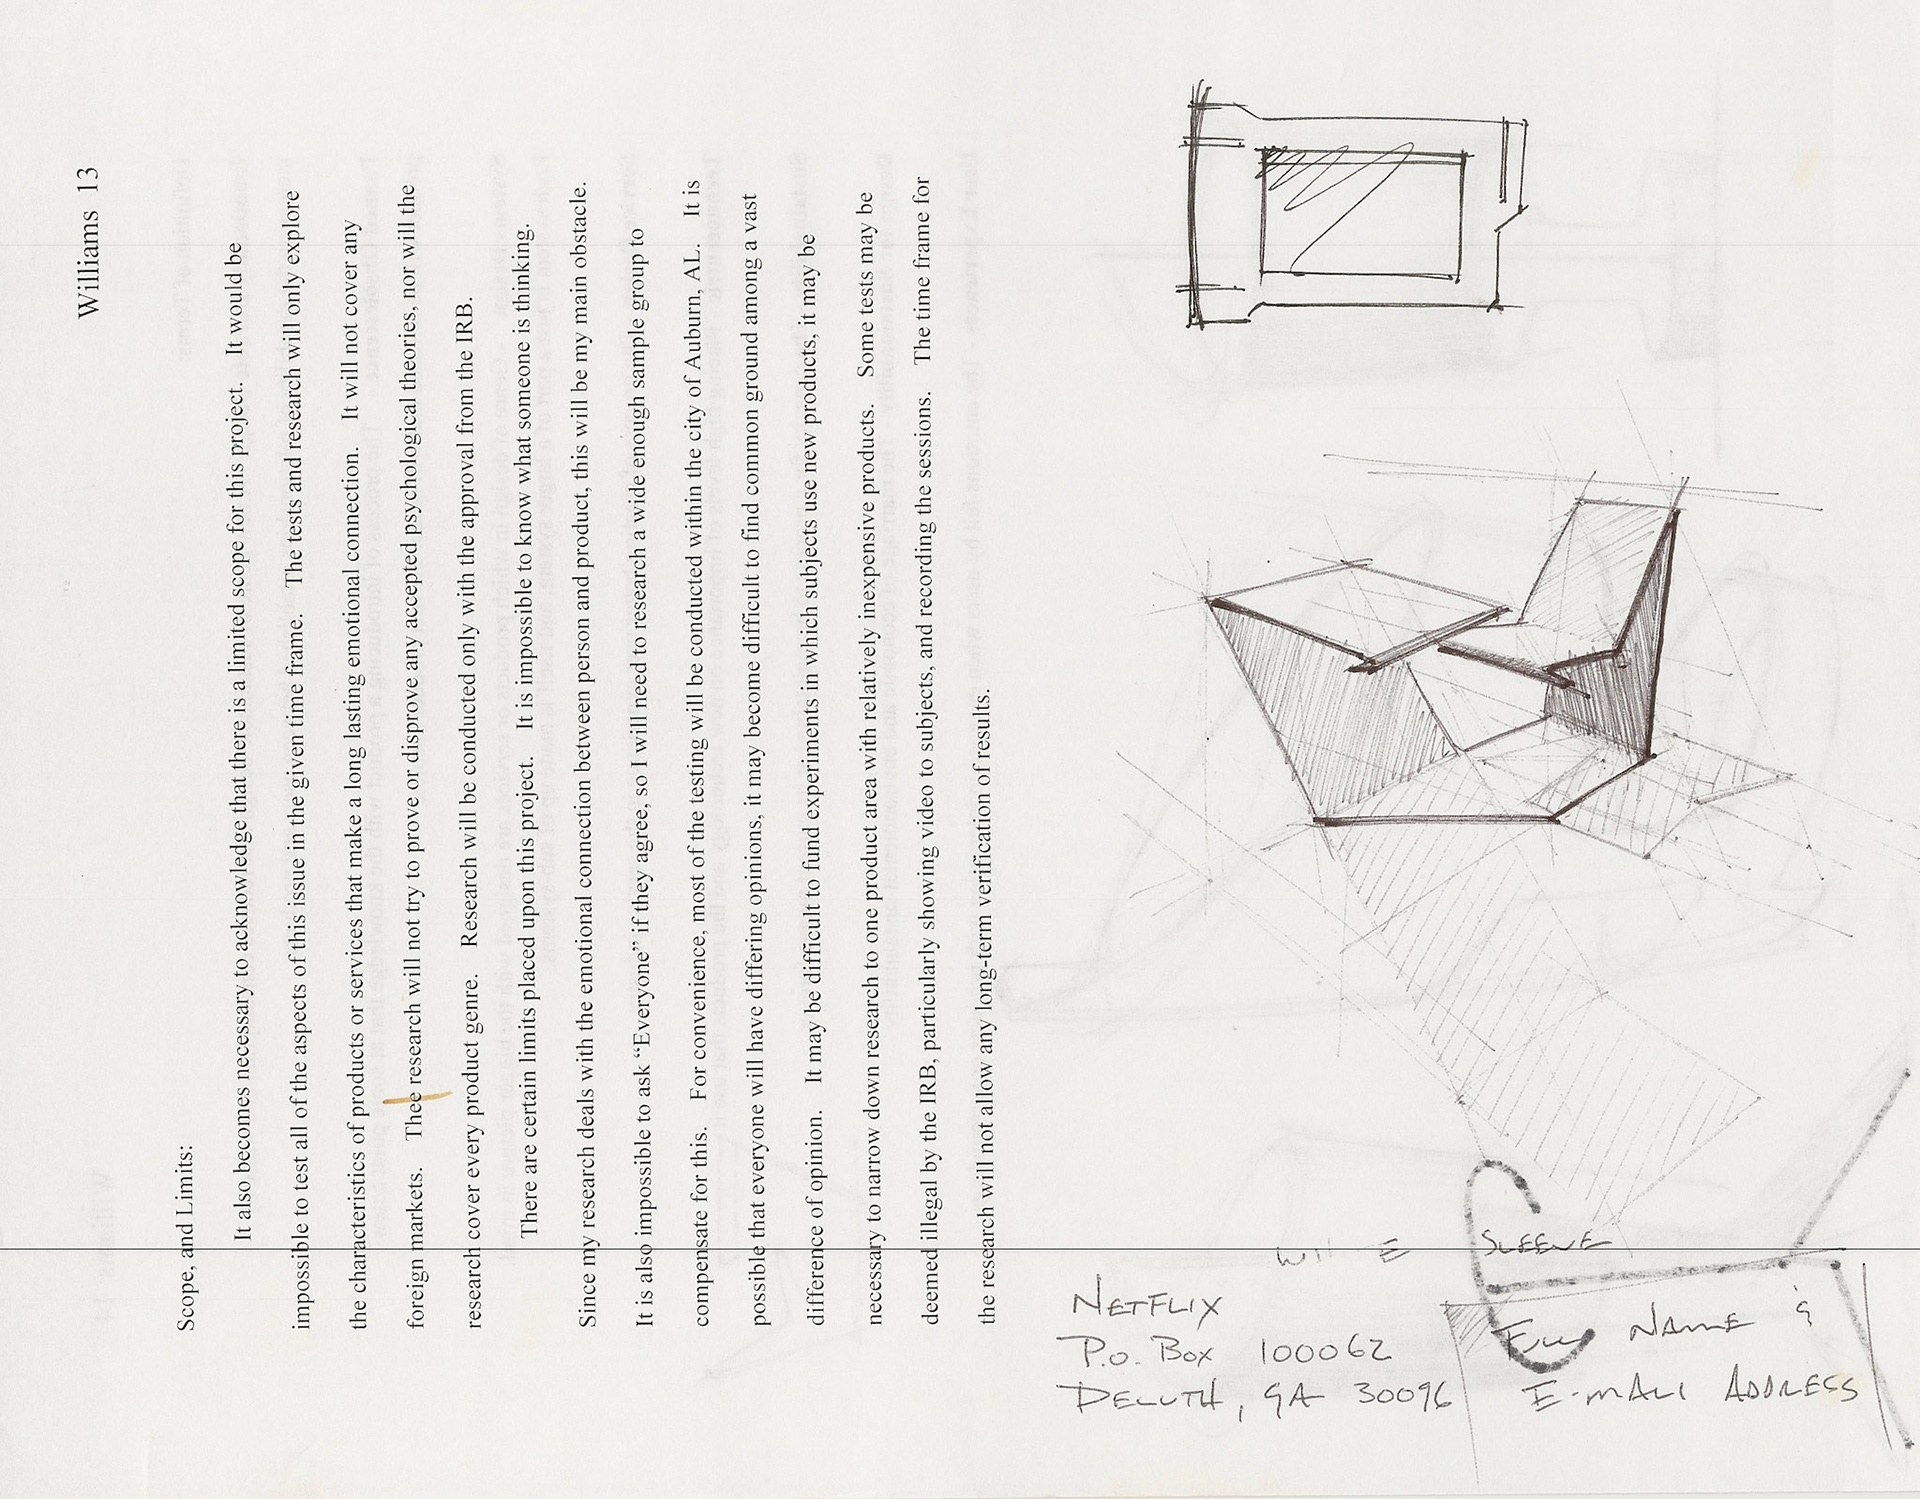 Williams 13
Scope, and Limits:
It also becomes necessary to acknowledge that there is a limited scope for this project. It would be
impossible to test all of the aspects of this issue in the given time frame. The tests and research will only explore
the characteristics of products or services that make a long lasting emotional connection. It will not cover any
foreign markets. Thee research will not try to prove or disprove any accepted psychological theories, nor will the
research cover every product genre. Research will be conducted only with the approval from the IRB.
There are certain limits placed upon this project. It is impossible to know what someone is thinking.
Since my research deals with the emotional connection between person and product, this will be my main obstacle.
It is also impossible to ask “Everyone” if they agree, so I will need to research a wide enough sample group to
compensate for this. For convenience, most of the testing will be conducted within the city of Auburn, AL. It is
possible that everyone will have differing opinions, it may become difficult to find common ground among a vast
difference of opinion. It may be difficult to fund experiments in which subjects use new products, it may be
necessary to narrow down research to one product area with relatively inexpensive products. Some tests may be
deemed illegal by the IRB, particularly showing video to subjects, and recording the sessions. The time frame for
the research will not allow any long-term verification of results.
SLEEVE
NETFLIX
P.O. Box 100062
DELUTH, GA 30096
Full NAME &
E-MAIL ADDRESS